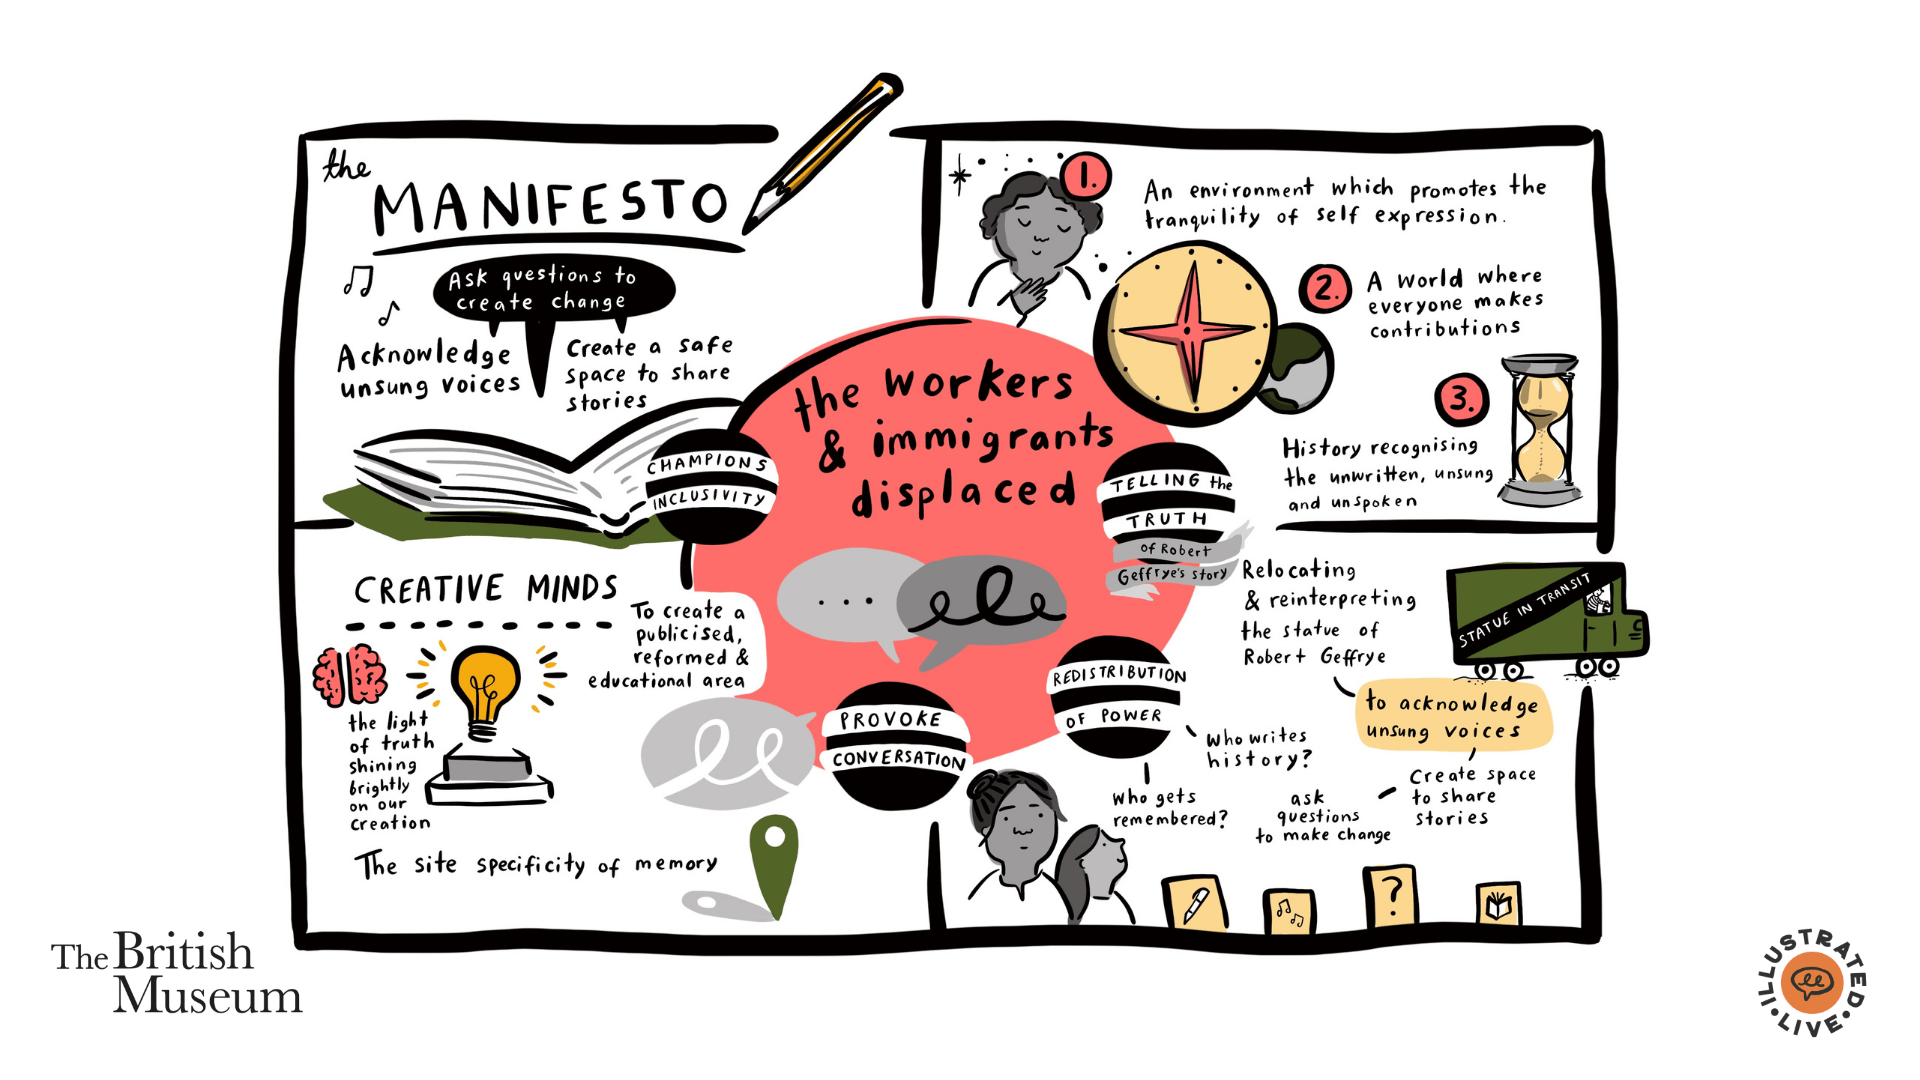 the
MANIFESTO
Ask questions to
create change
Acknowledge
unsung voices
Create a safe
space to share
stories
CHAMPIONS
INCLUSIVITY
the workers
& immigrants
displaced
...
1.
An environment which promotes the
tranquility of self expression.
2.
A world where
everyone makes
contributions
3.
History recognising
the unwritten, unsung
and unspoken
TELLING the
TRUTH
of Robert
Geffrye's story
Relocating
& reinterpreting
the statue of
Robert Geffrye
STATUE IN TRANSIT
to acknowledge
unsung voices
Create space
to share
stories
ask
questions
to make change
REDISTRIBUTION
OF POWER
Who writes
history?
Who gets
remembered?
?
PROVOKE
CONVERSATION
CREATIVE MINDS
To create a
publicised,
reformed &
educational area
the light
of truth
shining
brightly
on our
creation
The site specificity of memory
The British
Museum
ILLUSTRATED
LIVE